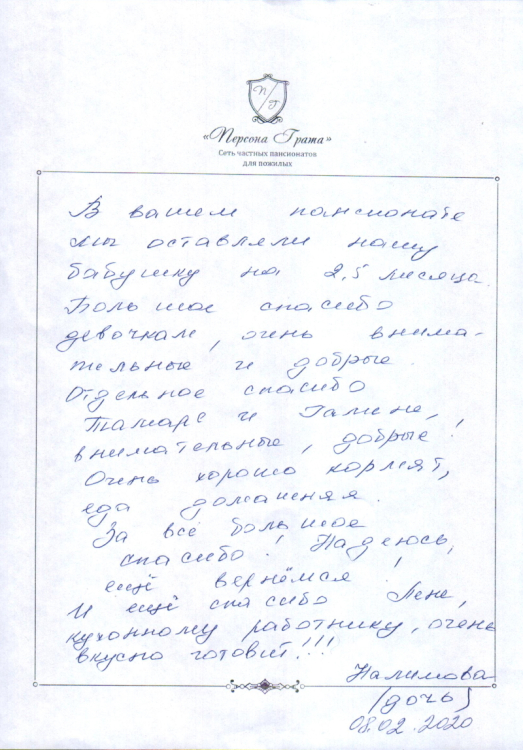 П Г
«Персона Грата»
Сеть частных пансионатов
для пожилых
В вашем пансионате
мы оставляли нашу
бабушку на 2,5 месяца.
Большое спасибо
девочкам, очень внима-
тельные и добрые.
Отдельное спасибо
Тамаре и Галине,
внимательные, добрые!
Очень хорошо кормят,
еда домашняя.
За всё большое
спасибо! Надеюсь,
ещё вернёмся!
И ещё спасибо Лене,
кухонному работнику, очень
вкусно готовит!!!
Налимова
(дочь)
08.02.2020